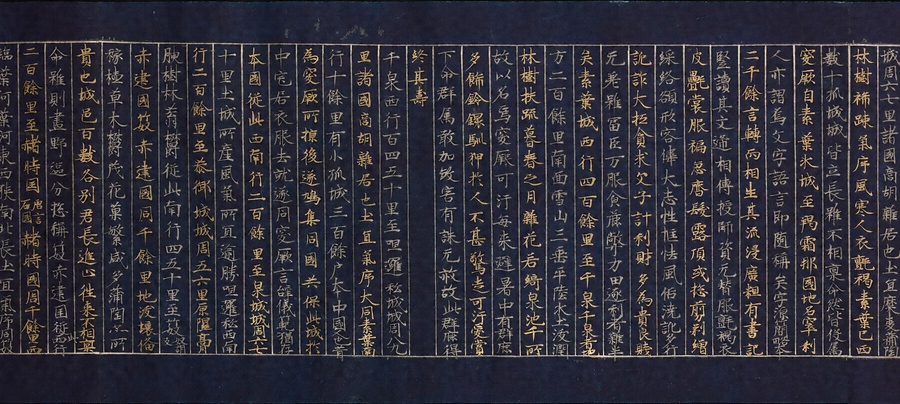 城周六七里諸國商胡雜居也土宜糜麥蒲萄
林樹稀疎氣序風寒人衣氈褐素葉已西
數十孤城城皆立長雖不相稟命然皆役屬
突厥自素葉水城至羯霜那國地名窣利
人亦謂焉文字語言即隨稱矣字源簡略本
二十餘言轉而相生其流浸廣粗有書記
竪讀其文遞相傳授師資无替服氈褐衣
皮㲲裳服褊急齊髮露頂或總剪剃繒
綵絡額形容偉大志性恇怯風俗澆訛多行
詭詐大抵貪求父子計利財多為貴良賤
无差雖富巨万服食麁弊力田逐利者雜半
矣素葉城西行四百餘里至千泉千泉者地
方二百餘里南面雪山三垂平陸水土沃潤
林樹扶疎暮春之月雜花若綺泉池千所
故以名焉突厥可汗每來避暑中有群鹿
多飾鈴鐶馴狎於人不甚驚走可汗愛賞
下命群屬敢加煞害有誅无赦故此群鹿得
終其壽
千泉西行百四五十里至呾邏私城城周八九
里諸國商胡雜居也土宜氣序大同素葉南
行十餘里有小孤城三百餘戶本中國人也昔
為突厥所掠後遂鳩集同國共保此城於
中宅居衣服去就遂同突厥言辭儀範猶存
本國從此西南行二百餘里至白水城城周六七
里土城所產風氣所宜逾勝呾邏私西南
行二百餘里至恭御城城周五六里原隰膏
腴樹林蓊欝從此南行四五十里至笯
赤建國笯赤建國周千餘里地沃壤備
稼穡草木欝茂花菓繁盛多蒲萄亦所
貴也城邑百數各別君長進止往來不相稟
命雖則畫野區分總稱笯赤建國從此西行
二百餘里至赭時國唐言石國赭時國周千餘里西
臨葉河東西狹南北長土宜氣序同笯